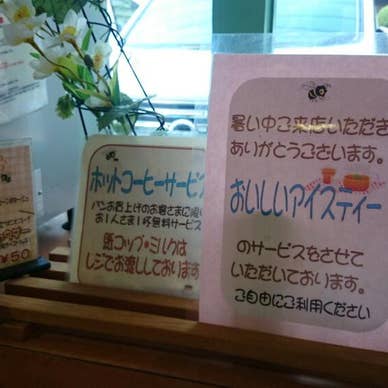 ホットコーヒーサービス
パンお買上げのお客さまに限り
お1人さま1杯無料サービス
紙コップ・ミルクは
レジでお渡ししております
暑い中ご来店いただき
ありがとうございます。
おいしいアイスティー
のサービスをさせて
いただいております。
ご自由にご利用ください
¥50